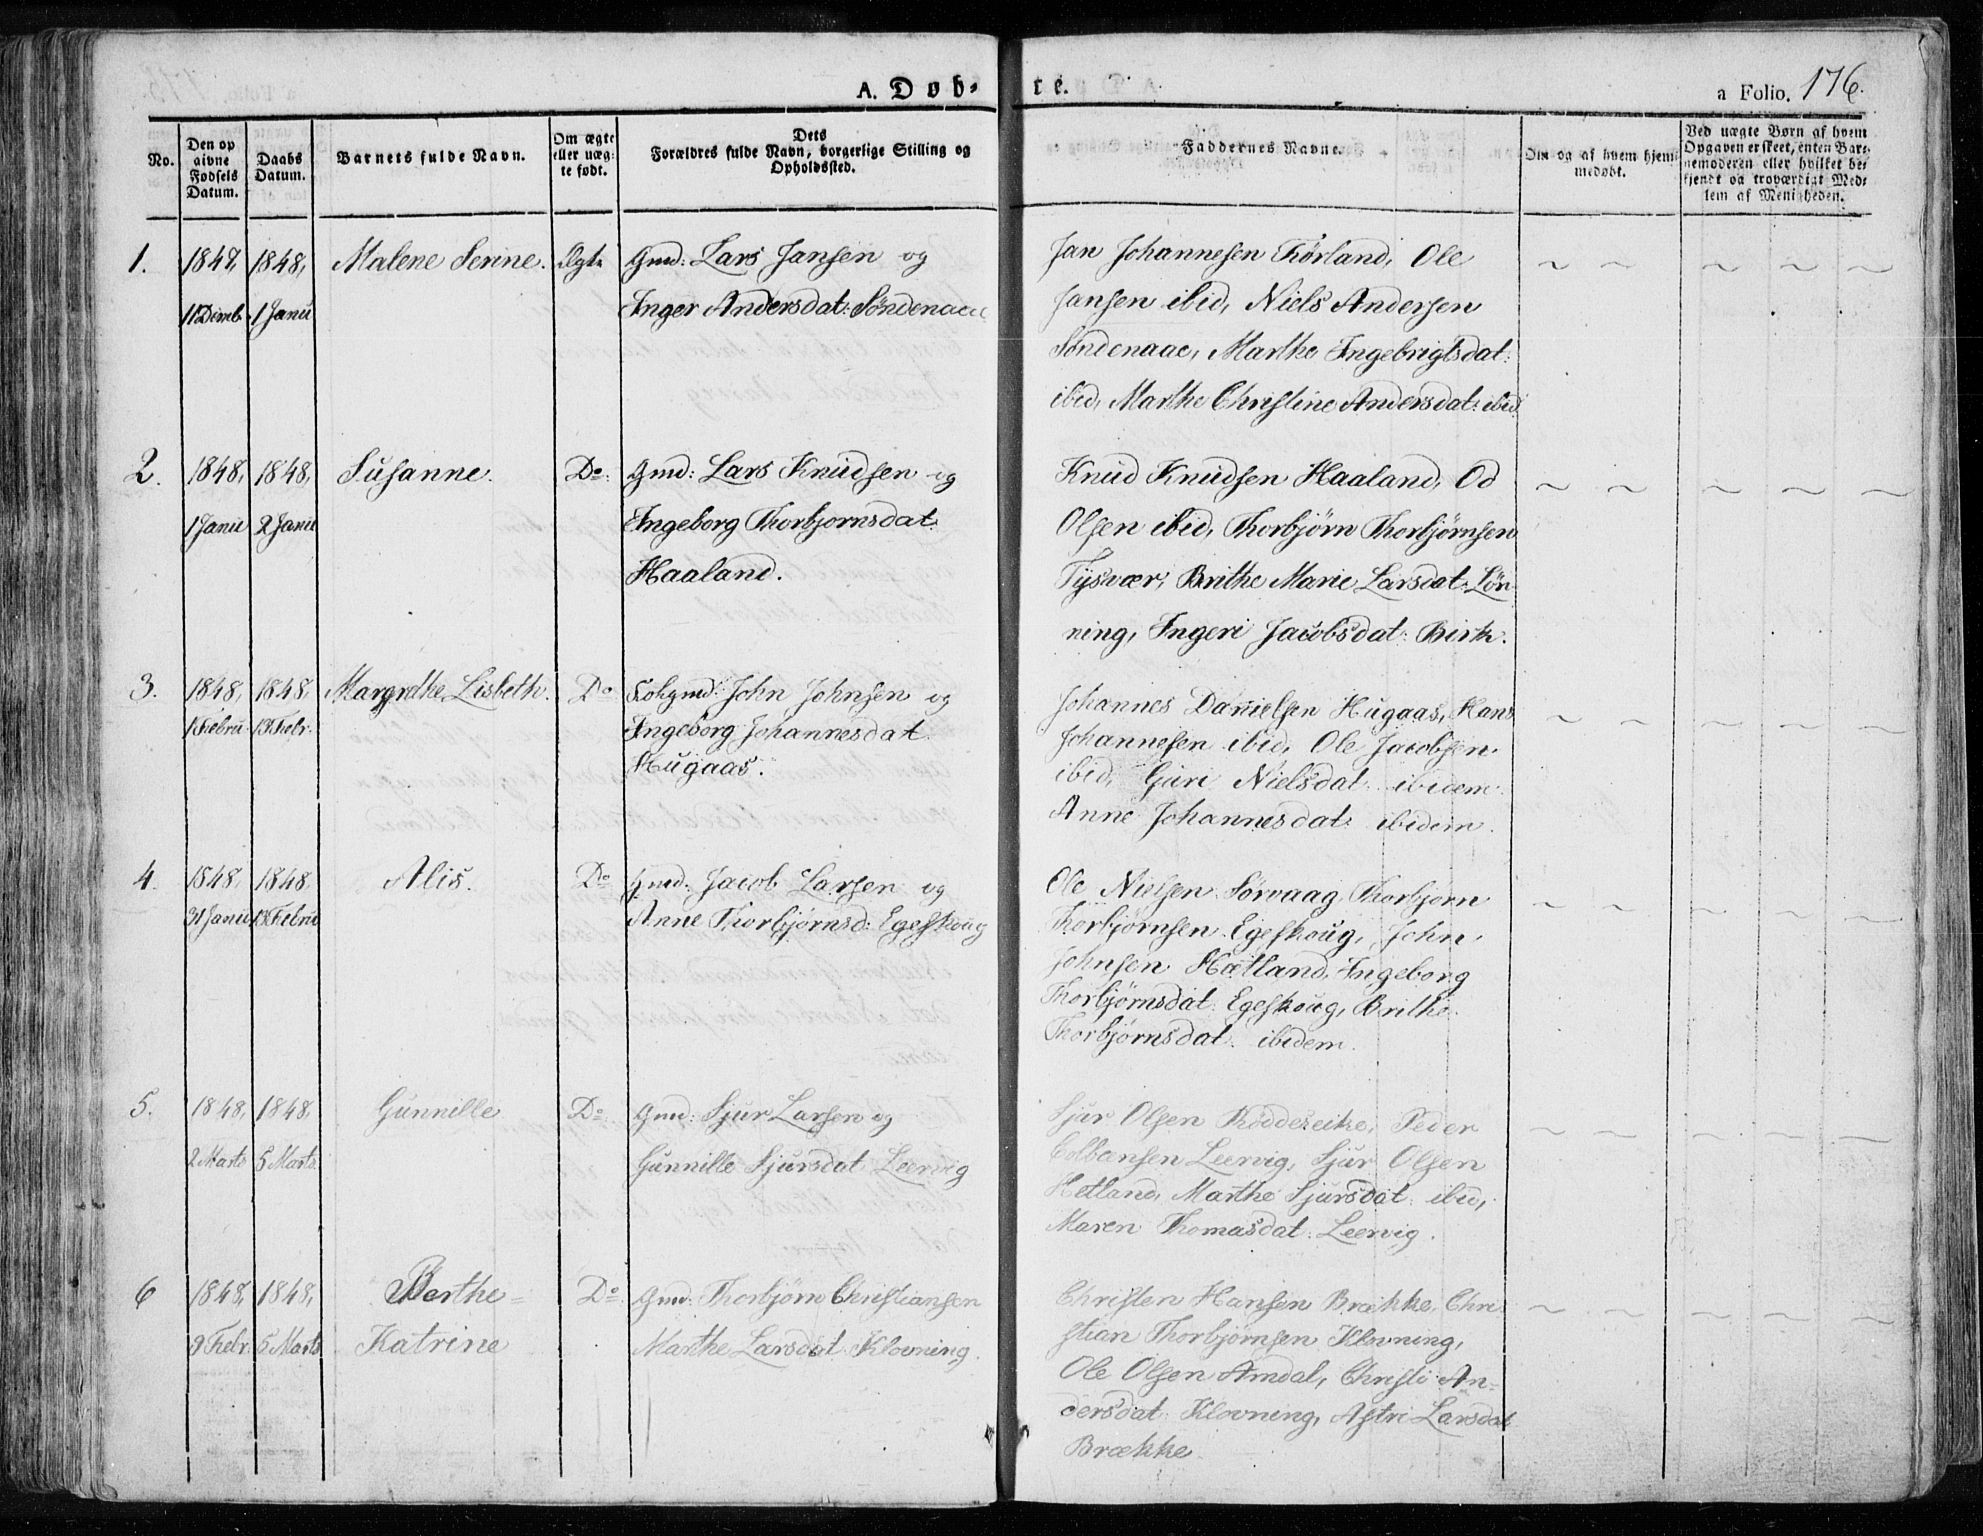 A. Døb-
te.
a Folio. 176.
No.
Den op
givne
Fødsels
Datum.
Daabs
Datum.
Barnets fulde Navn.
Om ægte
eller uæg-
te født.
Dets
Forældres fulde Navn, borgerlige Stilling og
Opholdssted.
Faddernes Navne.
Om og af hvem hjem-
medøbt.
Ved uægte Børn af hvem
Opgaven er skeet, enten Bar-
nemoderen eller hvilket be-
kjendt og troværdigt Med-
lem af Menigheden.
1.
1847,
11 Dcmb.
1848,
1 Janu
Malene Serine.
Ægte
Gmd: Lars Jansen og
Inger Andersdat: Søndenaae
Jan Johannesen Kørland, Ole
Jansen ibid, Niels Andersen
Søndenaae, Marthe Ingebrigtsdat:
ibid, Marthe Christine Andersdat: ibid
2.
1848,
1 Janu
1848,
2 Janu
Susanne.
Do.
Gmd: Lars Knudsen og
Ingeborg Thorbjornsdat:
Haaland.
Knud Knudsen Haaland, Od
Olsen ibid, Thorbjørn Thorbjørnsen
Tysvær, Brithe Marie Larsdat: Løn-
ning, Ingeri Jacobsdat: Birk.
3.
1848,
1 Febru
1848
13 Febr.
Margrethe Lisbeth.
Do
Gmd: John Johnsen og
Ingeborg Johannesdat
Hugaas.
Johannes Danielsen Hugaas, Hans
Johannesen ibid, Ole Jacobsen
ibid, Guri Nielsdat ibidem
Anne Johannesdat: ibidem.
4.
1848,
31 Janu
1848
13 Febru
Alis.
Do
Gmd: Jacob Larsen og
Anne Thorbjørnsd: Egeskoug
Ole Nielsen Sørvaag, Thorbjørn
Thorbjørnsen Egeskoug, John
Johnsen Hatland, Ingeborg
Thorbjørnsdat: Egeskoug, Brithe
Thorbjørnsdat. ibidem.
5.
1848,
2 Marts
1848,
5 Marts.
Gunnille
Do
Gmd: Sjur Larsen og
Gunnille Sjursdat Leervig
Sjur Olsen Røddeseike, Peder
Colbansen Leervig, Sjur Olsen
Hetland, Marthe Sjursdat: ibid,
Maren Thomasdat: Leervig.
6
1848,
9 Febr.
1848,
5 Marts
Berthe=
Katrine
Do
Gmd: Thorbjørn Christiansen
Marthe Larsdat Klovning.
Christen Hansen Brække, Chri
stian Thorbjørnsen Klovning,
Ole Olsen Amdal, Christi An-
dersdat: Klovning, Astri Larsdat
Brække.